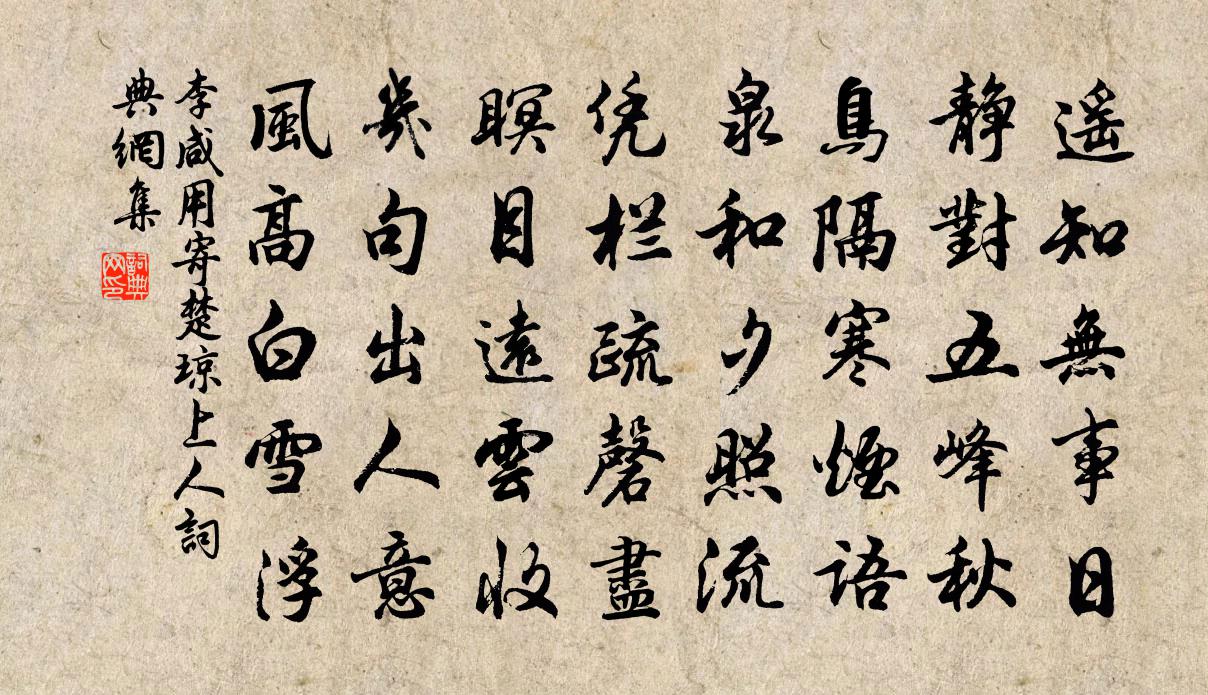 遥知無事日
静對五峰秋
鳥隔寒煙語
泉和夕照流
凭栏疏磬盡
瞑目遠雲收
幾句出人意
風高白雪浮
李咸用寄楚琼上人詞
典網集
詞典
网印